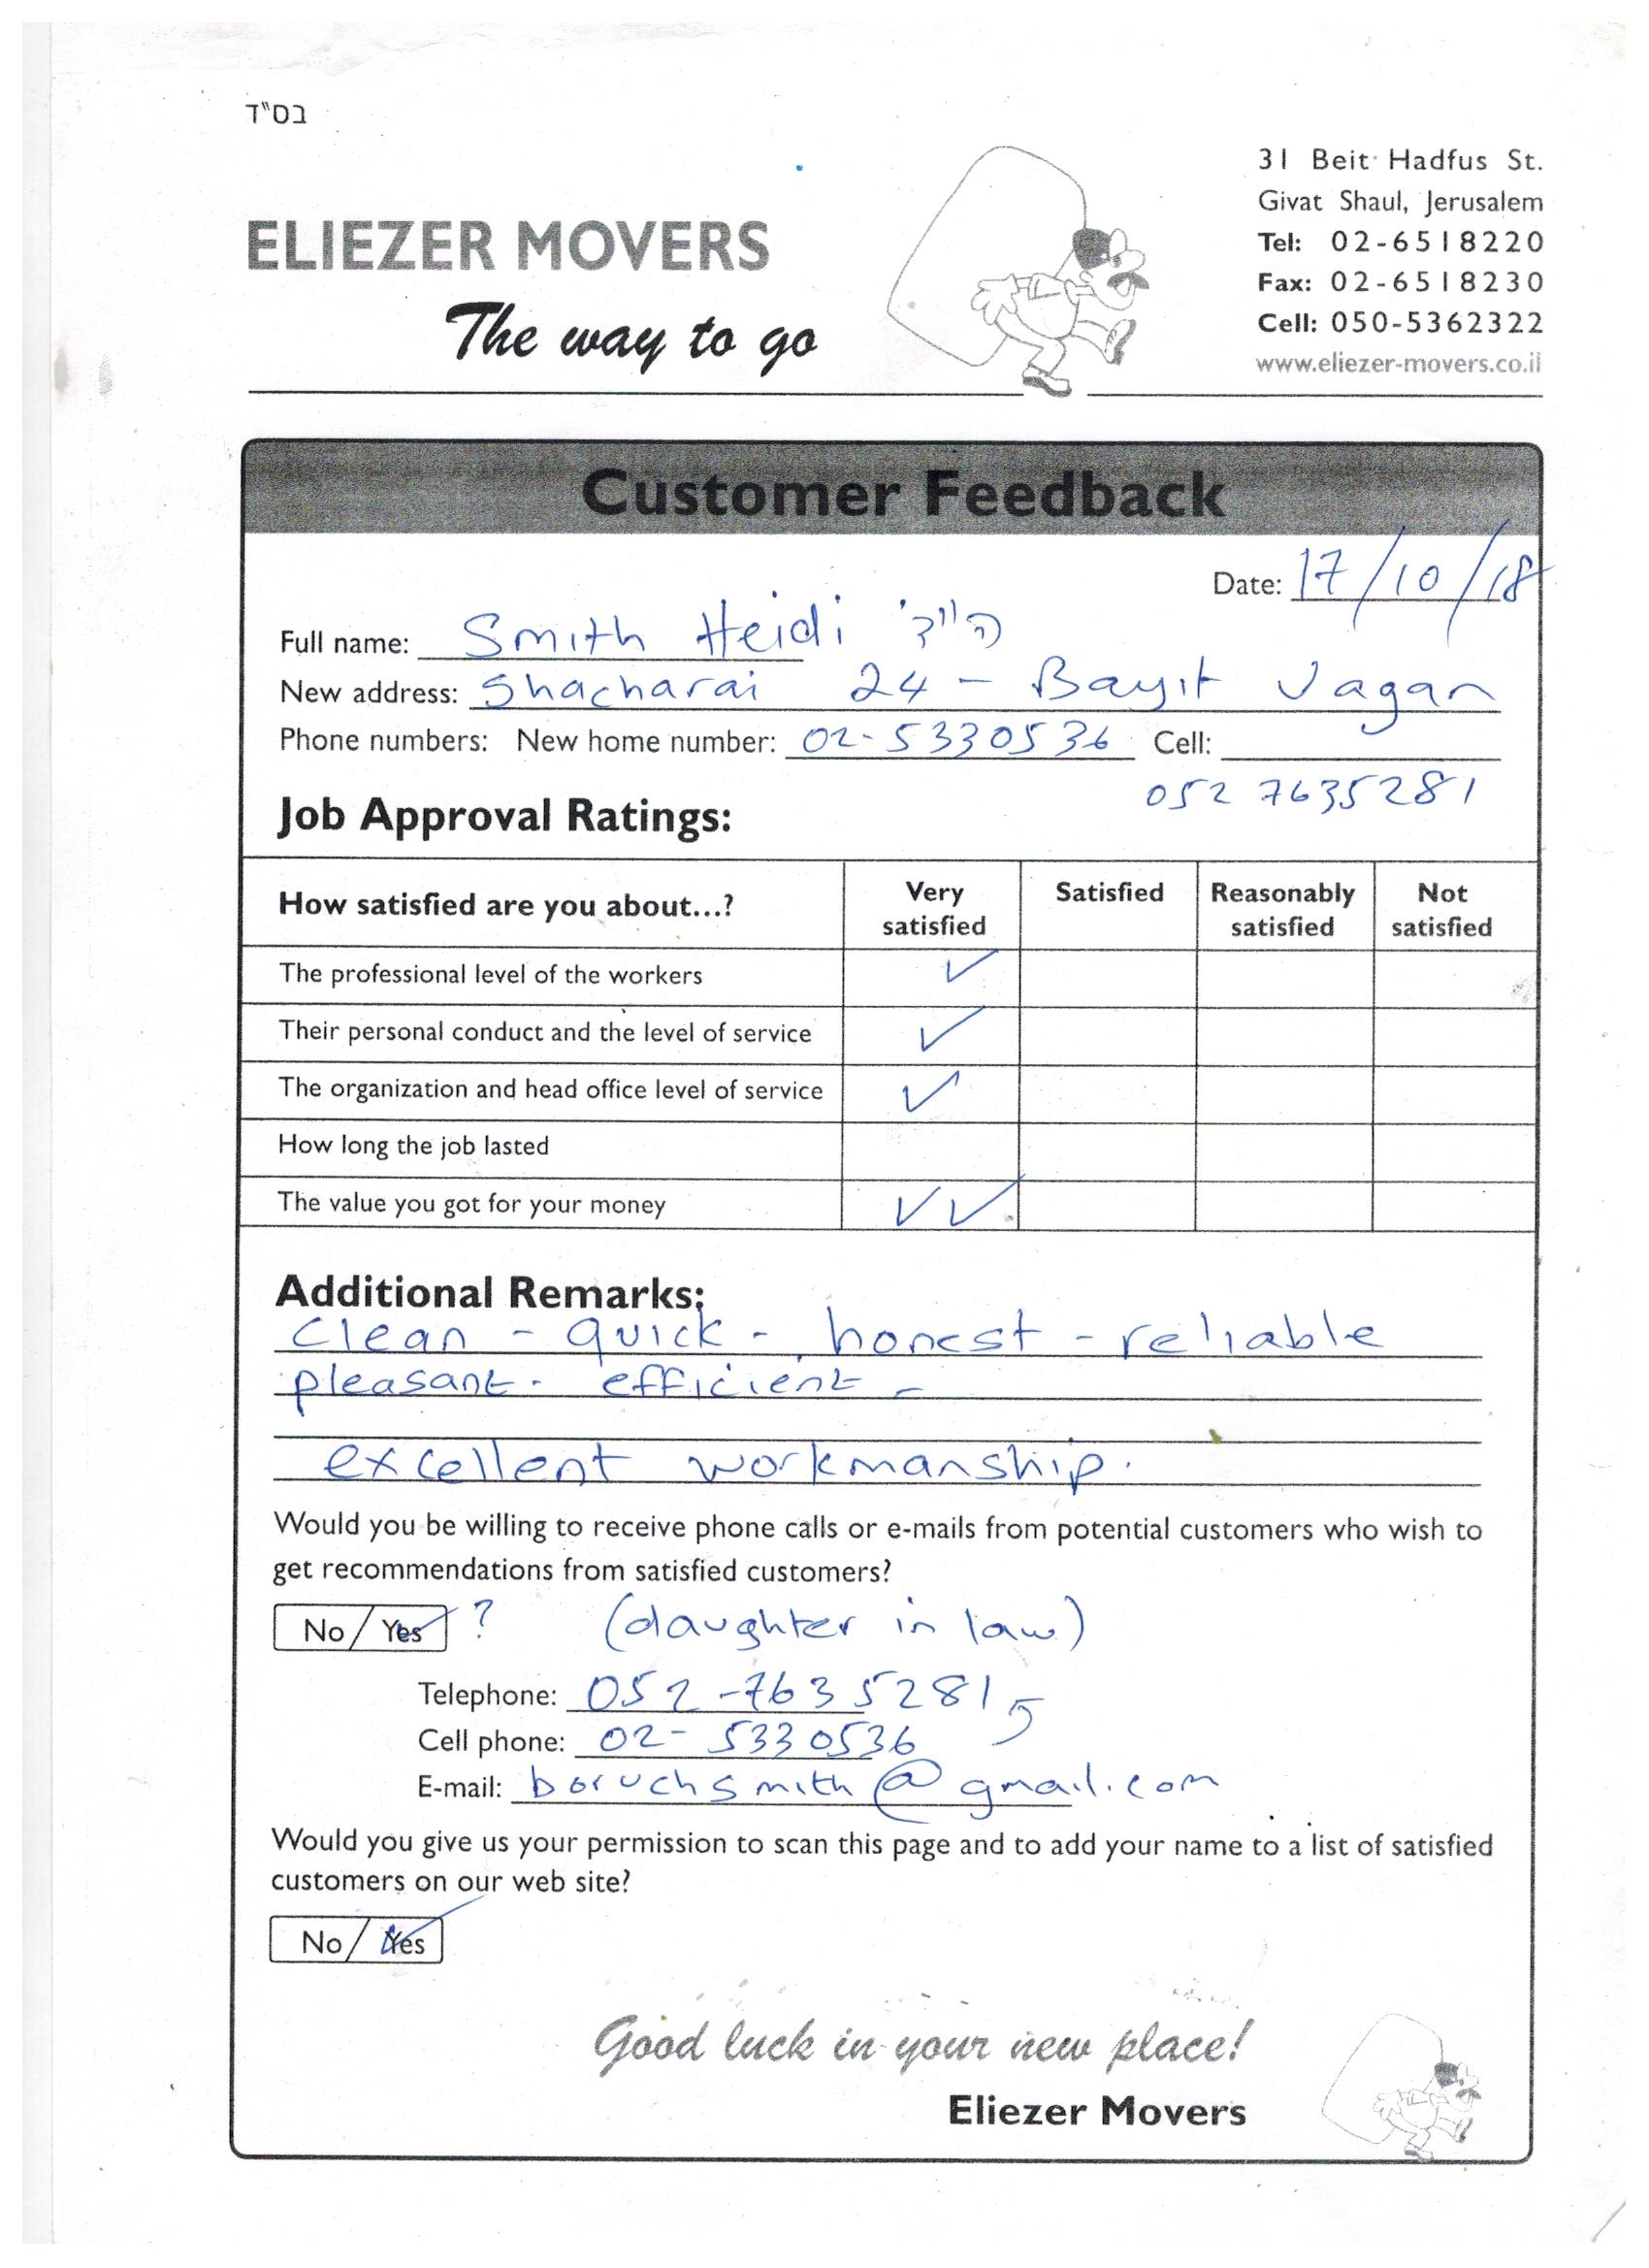 בס"ד
ELIEZER MOVERS
The way to go
31 Beit Hadfus St.
Givat Shaul, Jerusalem
Tel: 02-6518220
Fax: 02-6518230
Cell: 050-5362322
www.eliezer-movers.co.il
Customer Feedback
Date: 17/10/18
Full name: Smith Heidi
New address: Shacharai 24 - Bayit Vagan
Phone numbers: New home number: 02-5330536 Cell:
052 7635281
Job Approval Ratings:
How satisfied are you about...? Very satisfied Satisfied Reasonably satisfied Not satisfied
The professional level of the workers ✓
Their personal conduct and the level of service ✓
The organization and head office level of service ✓
How long the job lasted
The value you got for your money ✓✓
Additional Remarks:
clean - quick - honest - reliable
pleasant - efficient -
excellent workmanship.
Would you be willing to receive phone calls or e-mails from potential customers who wish to
get recommendations from satisfied customers?
No / Yes ✓ ? (daughter in law)
Telephone: 052-7635281
Cell phone: 02-5330536
E-mail: boruchsmith@gmail.com
Would you give us your permission to scan this page and to add your name to a list of satisfied
customers on our web site?
No / Yes ✓
Good luck in your new place!
Eliezer Movers